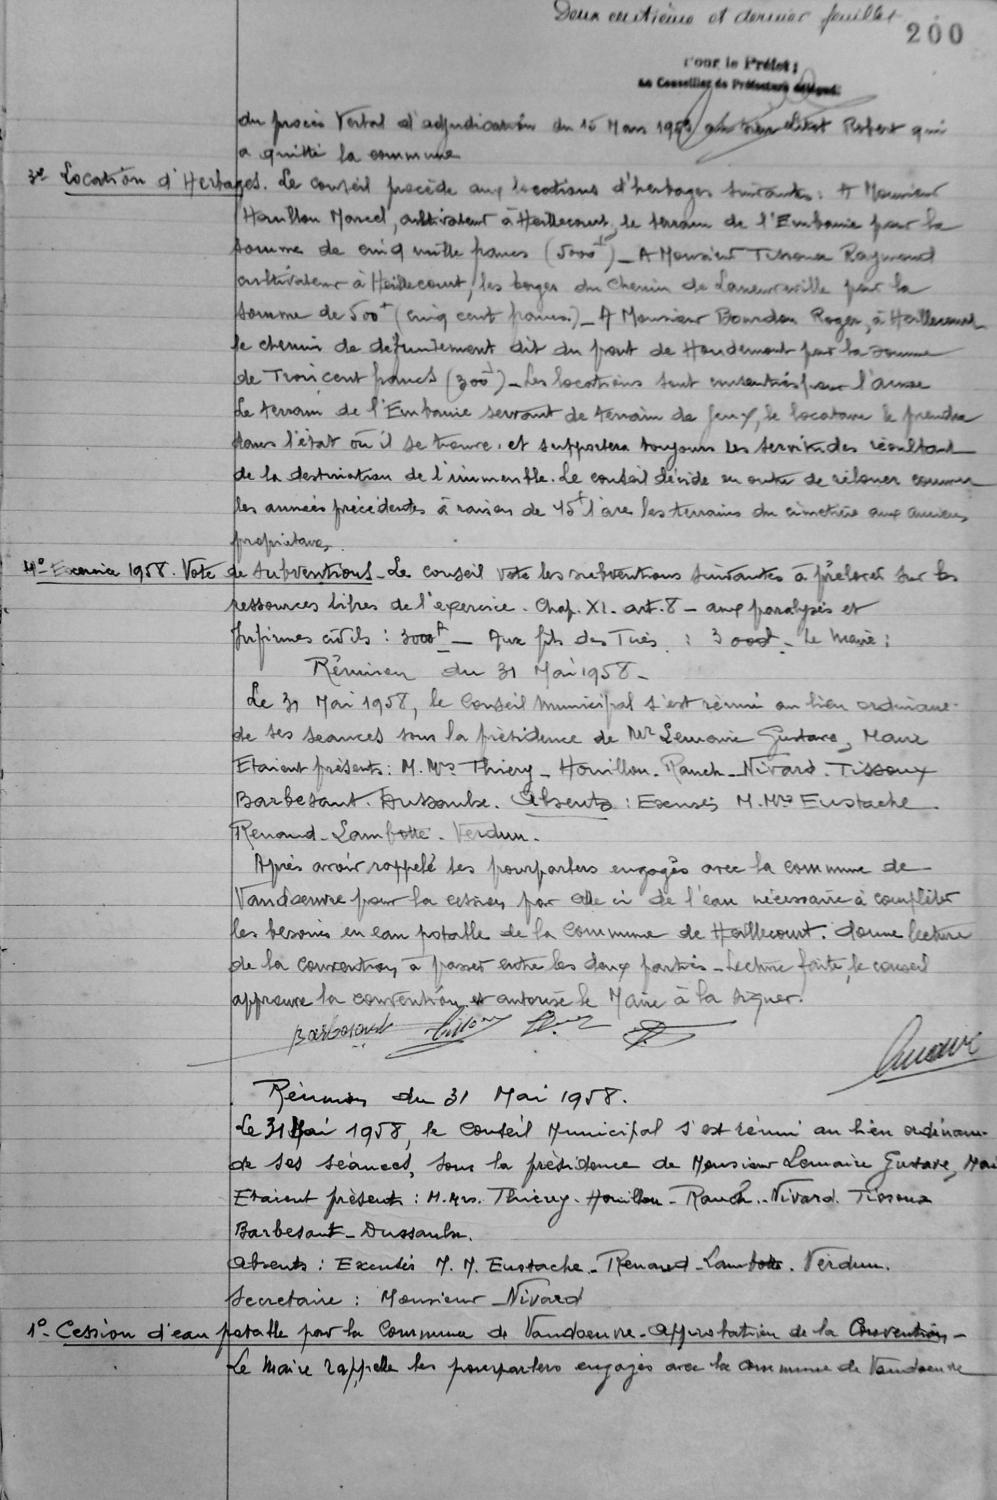 Deux centième et dernier feuillet
200
Pour le Préfet;
Le Conseiller de Préfecture délégué.
du procès Verbal d'adjudication du 15 Mars au sieur Robert qui
a quitté la commune
3e Location d'Herbages. Le conseil procède aux locations d'herbages suivantes: A Monsieur
Houillon Marcel, cultivateur à Heillecourt, le terrain de l'Embanie pour la
somme de cinq mille francs (5000f) - A Monsieur Tissoux Raymond
cultivateur à Heillecourt, les berges du chemin de Laneuveville pour la
somme de 500f (cinq cent francs) - A Monsieur Bourdon Roger, à Heillecourt
le chemin de défruitement dit du pont de Houdemont pour la somme
de Trois cent francs (300f) - Les locations sont consenties pour l'année
Le terrain de l'Embanie servant de terrain de jeux, le locataire le prendra
dans l'état où il se trouve, et supportera toujours les servitudes résultant
de la destination de l'immeuble. Le conseil décide en outre de relouer comme
les années précédentes à raison de 15f l'are les terrains du cimetière aux anciens
propriétaires.
4° Exercice 1958. Vote de subventions - Le conseil vote les subventions suivantes à prélever sur les
ressources libres de l'exercice. Chap. XI. art. 8 - aux paralysés et
Infirmes civils : 3000f - Aux fils des Tués : 3000f - Le Maire :
Réunion du 31 Mai 1958 -
Le 31 Mai 1958, le Conseil Municipal s'est réuni au lieu ordinaire
de ses séances sous la présidence de Mr Lemoine Gustave, Maire
Etaient présents: M.Mrs Thiery - Houillon - Rauch - Nivard - Tissoux
Barbesant - Dussaulx. Absents : Excusés M.Mrs Eustache
Renaud - Lambotte - Verdun.
Après avoir rappelé les pourparlers engagés avec la commune de
Vandoeuvre pour la cession par celle ci de l'eau nécessaire à compléter
les besoins en eau potable de la Commune de Heillecourt. donne lecture
de la convention à passer entre les deux parties - Lecture faite, le conseil
approuve la convention et autorise le Maire à la signer.
Barbesant
Réunion du 31 Mai 1958.
Le 31 Mai 1958, le Conseil Municipal s'est réuni au lieu ordinaire
de ses séances, sous la présidence de Monsieur Lemoine Gustave, Mai
Etaient présents : M.Mrs. Thiery - Houillon - Rauch - Nivard. Tissoux
Barbesant - Dussaulx.
Absents : Excusés M. M. Eustache - Renaud - Lambotte - Verdun.
Secretaire : Monsieur Nivard
1° - Cession d'eau potable par la Commune de Vandoeuvre - Approbation de la Convention -
Le Maire rappelle les pourparlers engagés avec la commune de Vandoeuvre